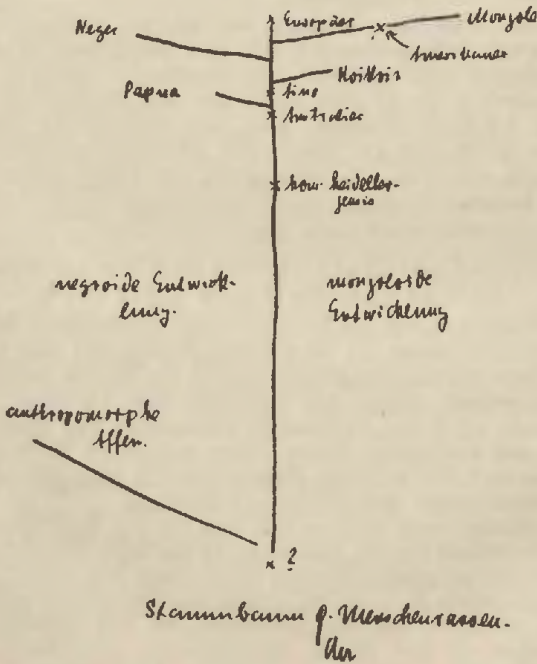 Europäer
Mongole
Neger
Amerikaner
Hottent
Papua
Aino
Australier
hom. heidelber-
gensis
negroide Entwick-
lung.
mongoloide
Entwicklung
anthropomorphe
Affen.
?
Stammbaum d. Menschenrassen.